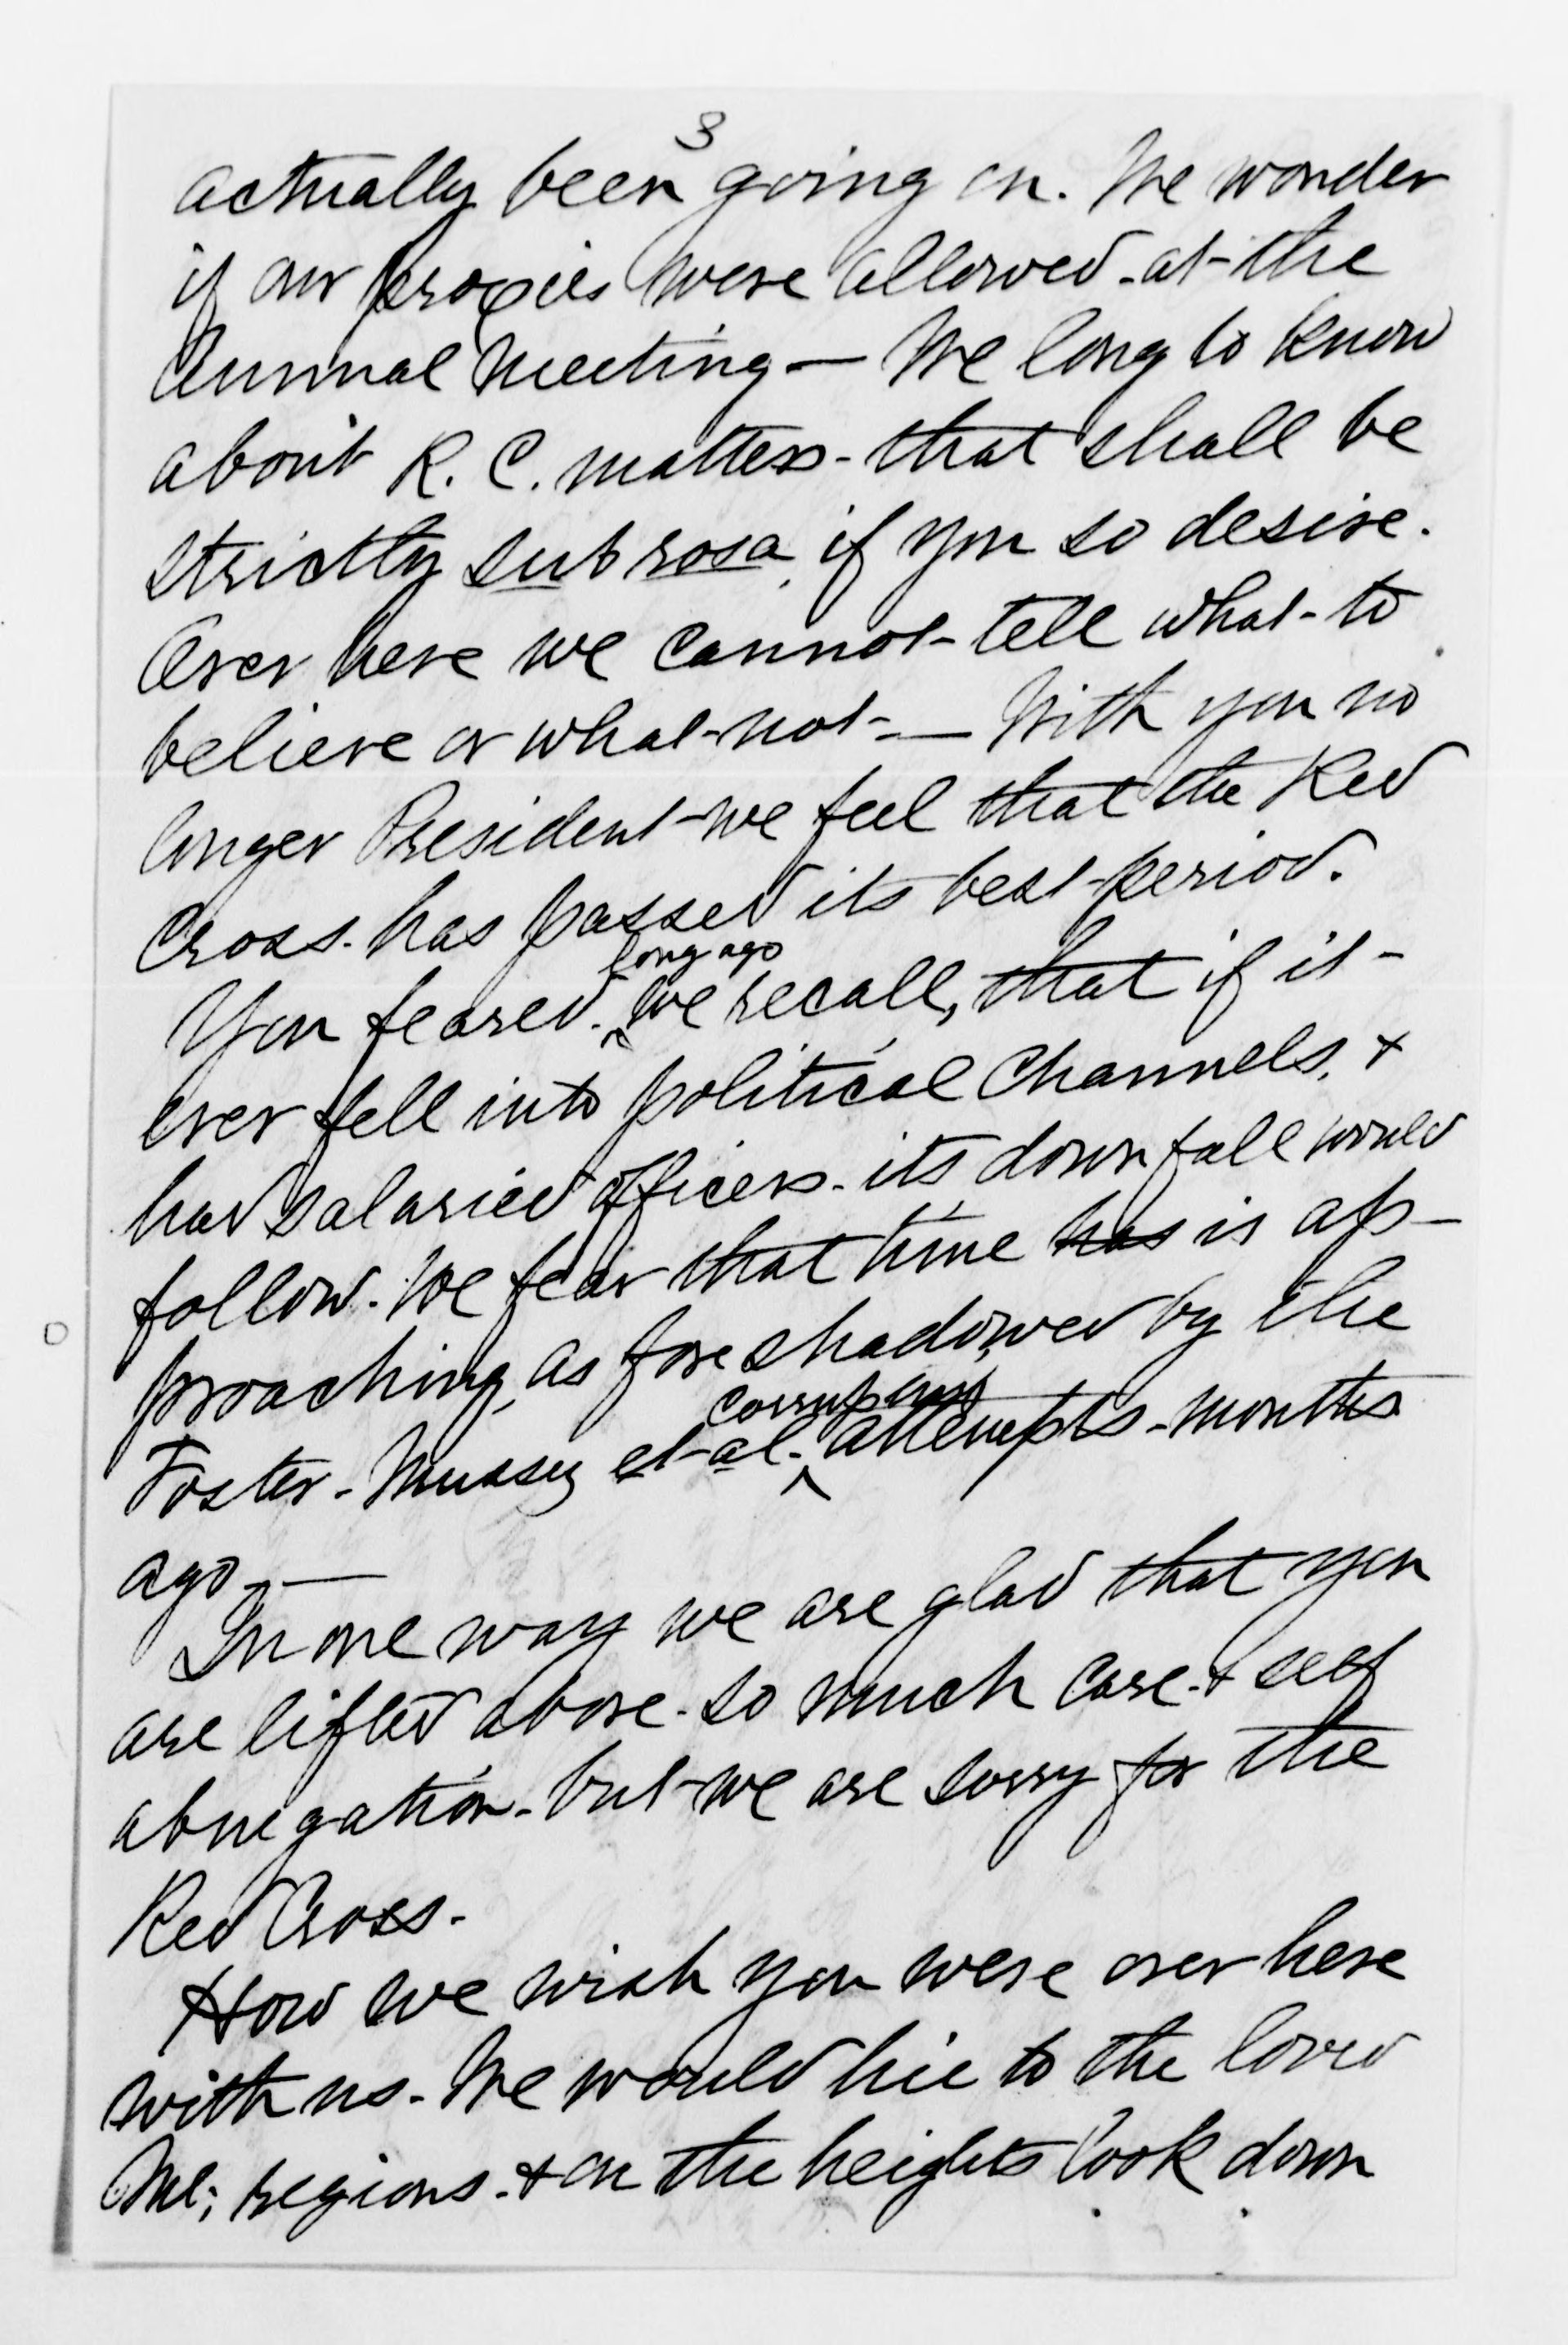 3
actually been going on. We wonder
if our proxies were allowed - at - the
Annual Meeting — We long to know
about R. C. matters - that shall be
strictly sub rosa, if you so desire.
Over here we cannot - tell what - to
believe or what - not - — With you no
longer President - we feel that the Red
Cross - has passed its best - period.
long ago
You feared - we recall, that if it -
ever fell into political channels, +
had salaried officers - its down fall would
follow. We fear that time has is ap-
proaching, as fore shadowed by the
corrupting
Foster - Mussey et - al. attempts - months
ago. —
In one way we are glad that you
are lifted above - so much care - + self
abnegation - but - we are sorry for the
Red Cross -
How we wish you were over here
with us - We would hie to the loved
Mt; regions - + on the heights look down